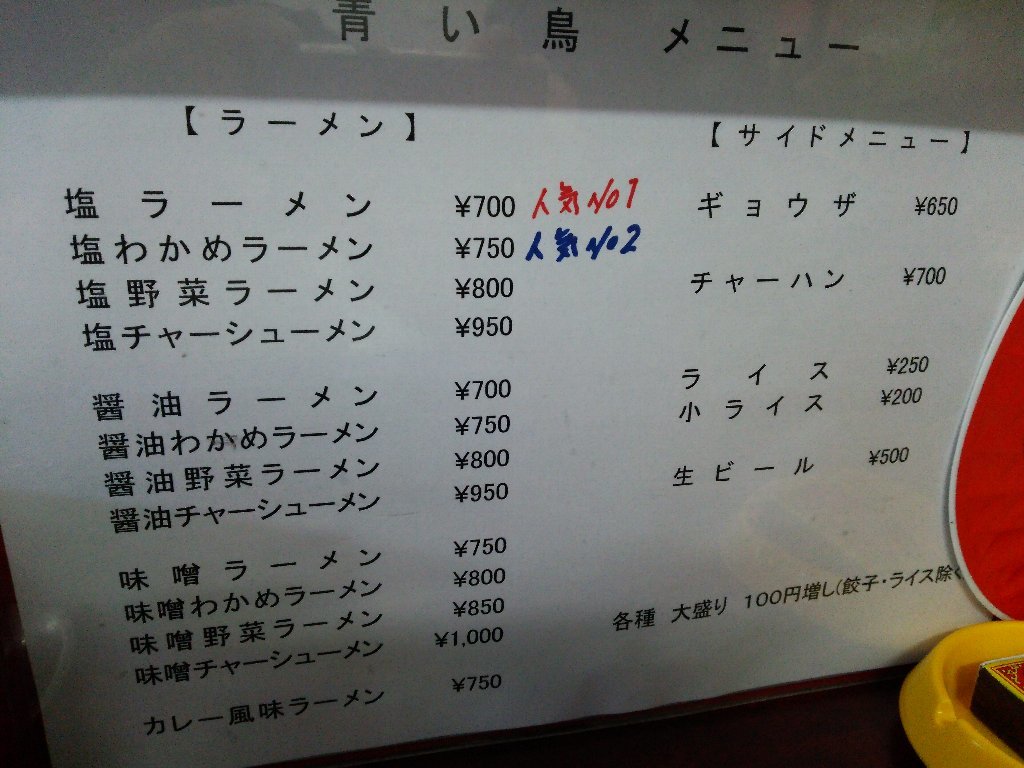 青い鳥 メニュー
【ラーメン】
塩ラーメン ¥700 人気No1
塩わかめラーメン ¥750 人気No2
塩野菜ラーメン ¥800
塩チャーシューメン ¥950
醤油ラーメン ¥700
醤油わかめラーメン ¥750
醤油野菜ラーメン ¥800
醤油チャーシューメン ¥950
味噌ラーメン ¥750
味噌わかめラーメン ¥800
味噌野菜ラーメン ¥850
味噌チャーシューメン ¥1,000
カレー風味ラーメン ¥750
【サイドメニュー】
ギョウザ ¥650
チャーハン ¥700
ライス ¥250
小ライス ¥200
生ビール ¥500
各種 大盛り 100円増し(餃子・ライス除く